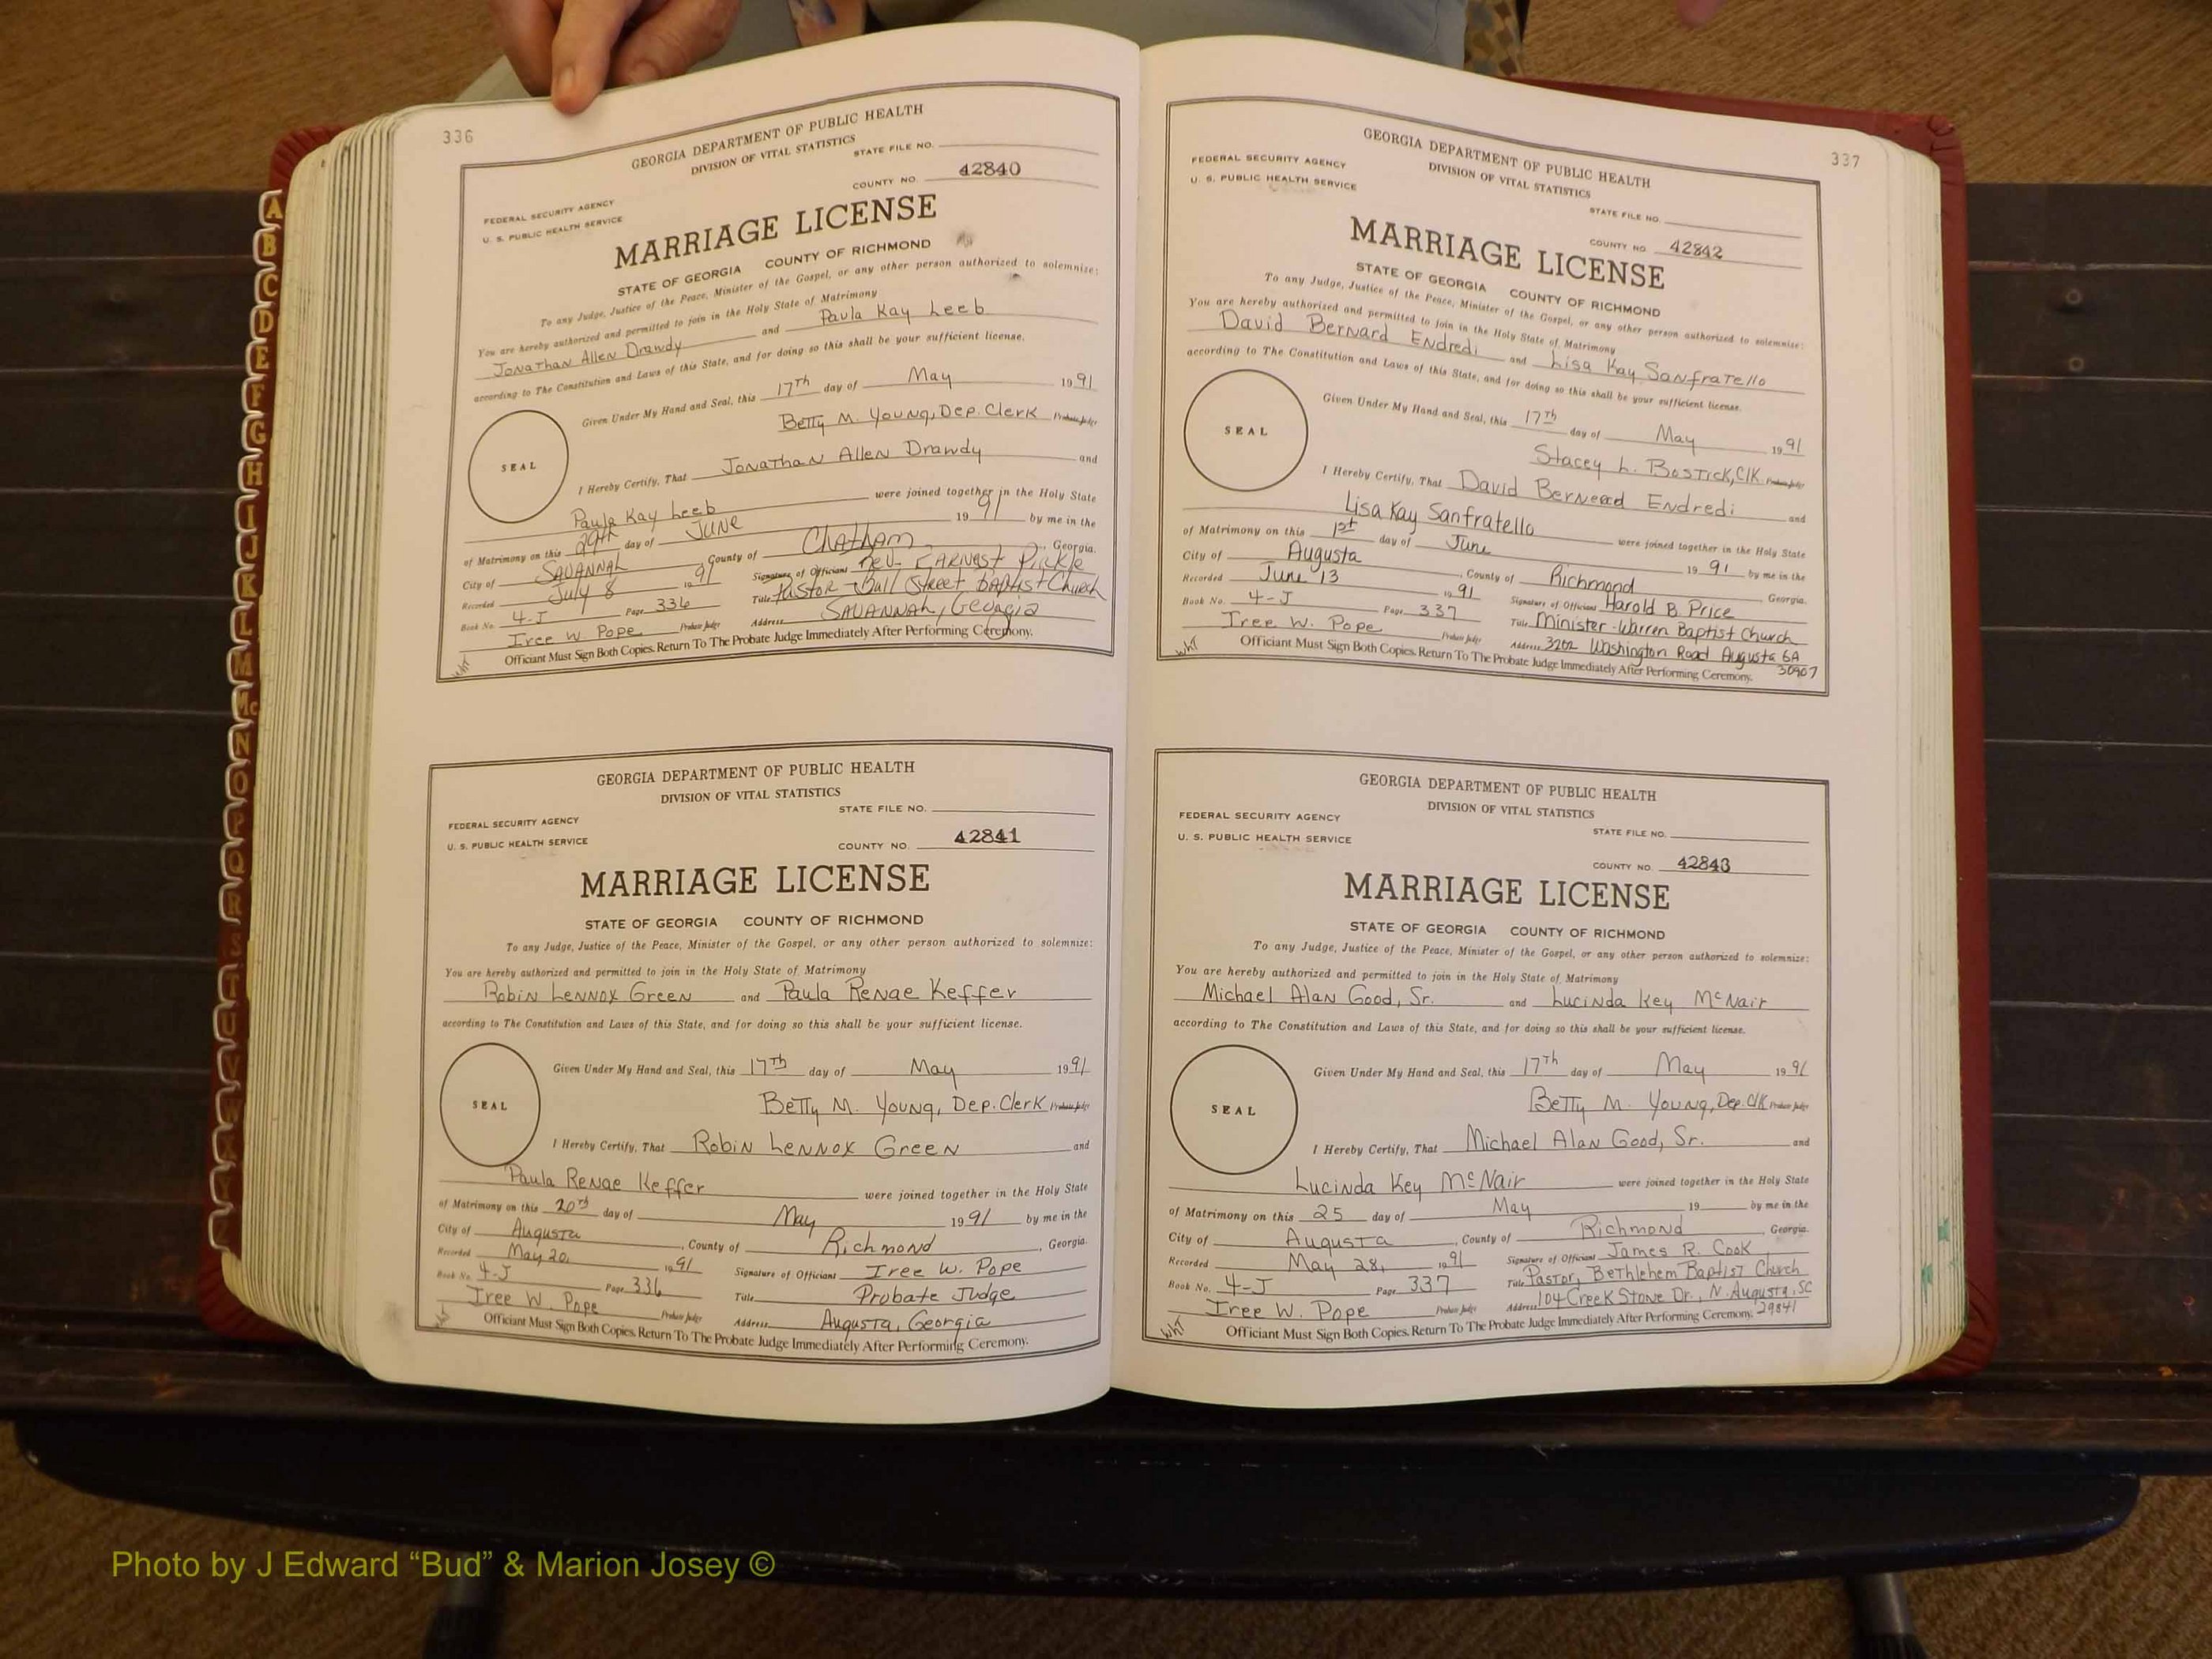 336
GEORGIA DEPARTMENT OF PUBLIC HEALTH
DIVISION OF VITAL STATISTICS
STATE FILE NO.
COUNTY NO. 42840
FEDERAL SECURITY AGENCY
U. S. PUBLIC HEALTH SERVICE
MARRIAGE LICENSE
STATE OF GEORGIA COUNTY OF RICHMOND
To any Judge, Justice of the Peace, Minister of the Gospel, or any other person authorized to solemnize:
You are hereby authorized and permitted to join in the Holy State of Matrimony
Jonathan Allen Drawdy and Paula Kay Leeb
according to The Constitution and Laws of this State, and for doing so this shall be your sufficient license.
Given Under My Hand and Seal, this 17th day of May 1991
Betty M. Young, Dep. Clerk Probate Judge
SEAL
I Hereby Certify, That Jonathan Allen Drawdy and
Paula Kay Leeb were joined together in the Holy State
of Matrimony on this 29th day of June 1991 by me in the
City of Savannah, County of Chatham, Georgia.
Recorded July 8 1991 Signature of Officiant Rev. Earnest Pickle
Book No. 4-J Page 336 Title Pastor - Bull Street Baptist Church
Iree W. Pope Probate Judge Address Savannah, Georgia
Officiant Must Sign Both Copies. Return To The Probate Judge Immediately After Performing Ceremony.
GEORGIA DEPARTMENT OF PUBLIC HEALTH
DIVISION OF VITAL STATISTICS
STATE FILE NO.
FEDERAL SECURITY AGENCY
U. S. PUBLIC HEALTH SERVICE
COUNTY NO. 42841
MARRIAGE LICENSE
STATE OF GEORGIA COUNTY OF RICHMOND
To any Judge, Justice of the Peace, Minister of the Gospel, or any other person authorized to solemnize:
You are hereby authorized and permitted to join in the Holy State of Matrimony
Robin Lennox Green and Paula Renae Keffer
according to The Constitution and Laws of this State, and for doing so this shall be your sufficient license.
Given Under My Hand and Seal, this 17th day of May 1991
Betty M. Young, Dep. Clerk Probate Judge
SEAL
I Hereby Certify, That Robin Lennox Green and
Paula Renae Keffer were joined together in the Holy State
of Matrimony on this 20th day of May 1991 by me in the
City of Augusta, County of Richmond, Georgia.
Recorded May 20, 1991 Signature of Officiant Iree W. Pope
Book No. 4-J Page 336 Title Probate Judge
Iree W. Pope Probate Judge Address Augusta, Georgia
Officiant Must Sign Both Copies. Return To The Probate Judge Immediately After Performing Ceremony.
337
GEORGIA DEPARTMENT OF PUBLIC HEALTH
DIVISION OF VITAL STATISTICS
FEDERAL SECURITY AGENCY
U. S. PUBLIC HEALTH SERVICE
STATE FILE NO.
COUNTY NO. 42842
MARRIAGE LICENSE
STATE OF GEORGIA COUNTY OF RICHMOND
To any Judge, Justice of the Peace, Minister of the Gospel, or any other person authorized to solemnize:
You are hereby authorized and permitted to join in the Holy State of Matrimony
David Bernard Endredi and Lisa Kay Sanfratello
according to The Constitution and Laws of this State, and for doing so this shall be your sufficient license.
Given Under My Hand and Seal, this 17th day of May 1991
Stacey L. Bostick, Clk. Probate Judge
SEAL
I Hereby Certify, That David Bernard Endredi and
Lisa Kay Sanfratello were joined together in the Holy State
of Matrimony on this 1st day of June 1991 by me in the
City of Augusta, County of Richmond Georgia.
Recorded June 13 1991 Signature of Officiant Harold B. Price
Book No. 4-J Page 337 Title Minister - Warren Baptist Church
Iree W. Pope Probate Judge Address 3202 Washington Road Augusta GA 30907
WHT Officiant Must Sign Both Copies. Return To The Probate Judge Immediately After Performing Ceremony.
GEORGIA DEPARTMENT OF PUBLIC HEALTH
DIVISION OF VITAL STATISTICS
FEDERAL SECURITY AGENCY
U. S. PUBLIC HEALTH SERVICE
STATE FILE NO.
COUNTY NO. 42843
MARRIAGE LICENSE
STATE OF GEORGIA COUNTY OF RICHMOND
To any Judge, Justice of the Peace, Minister of the Gospel, or any other person authorized to solemnize:
You are hereby authorized and permitted to join in the Holy State of Matrimony
Michael Alan Good, Sr. and Lucinda Key McNair
according to The Constitution and Laws of this State, and for doing so this shall be your sufficient license.
Given Under My Hand and Seal, this 17th day of May 1991
Betty M. Young, Dep. Clk Probate Judge
SEAL
I Hereby Certify, That Michael Alan Good, Sr. and
Lucinda Key McNair were joined together in the Holy State
of Matrimony on this 25 day of May 19 by me in the
City of Augusta, County of Richmond, Georgia.
Recorded May 28, 1991 Signature of Officiant James R. Cook
Book No. 4-J Page 337 Title Pastor, Bethlehem Baptist Church
Iree W. Pope Probate Judge Address 104 Creek Stone Dr., N. Augusta, SC 29841
WHT Officiant Must Sign Both Copies. Return To The Probate Judge Immediately After Performing Ceremony.
A
B
C
D
E
F
G
H
I
J
K
L
M
Mc
N
O
P
Q
R
S
T
U
V
W
Photo by J Edward “Bud” & Marion Josey ©